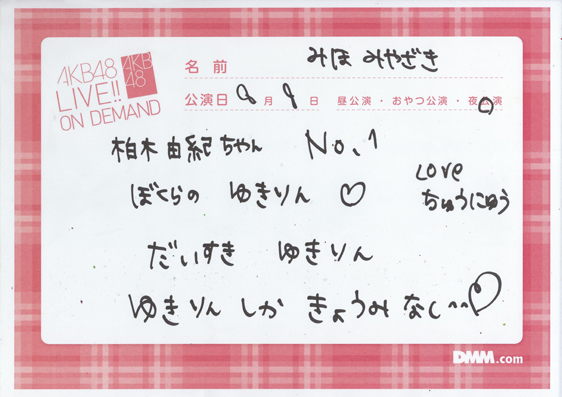 AKB48
LIVE!!
ON DEMAND
AKB
48
名前 みほ みやざき
公演日 8月9日 昼公演・おやつ公演・夜公演
柏木由紀ちゃん No.1
ぼくらの ゆきりん ♡
Love
ちゅうにゅう
だいすき ゆきりん
ゆきりんしか きょうみ なし〜♡
DMM.com